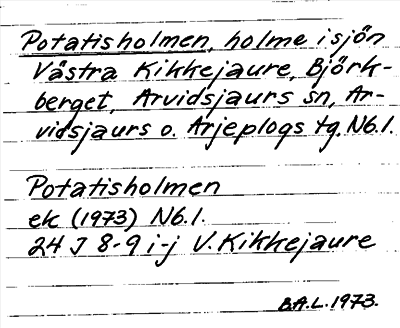 Potatisholmen, holme i sjön
Västra Kikkejaure, Björk-
berget, Arvidsjaurs sn, Ar-
vidsjaurs o. Arjeplogs tg. Nb.l.
Potatisholmen
ek (1973) Nb.l.
24 J 8-9 i-j V. Kikkejaure
B.A.L. 1973.